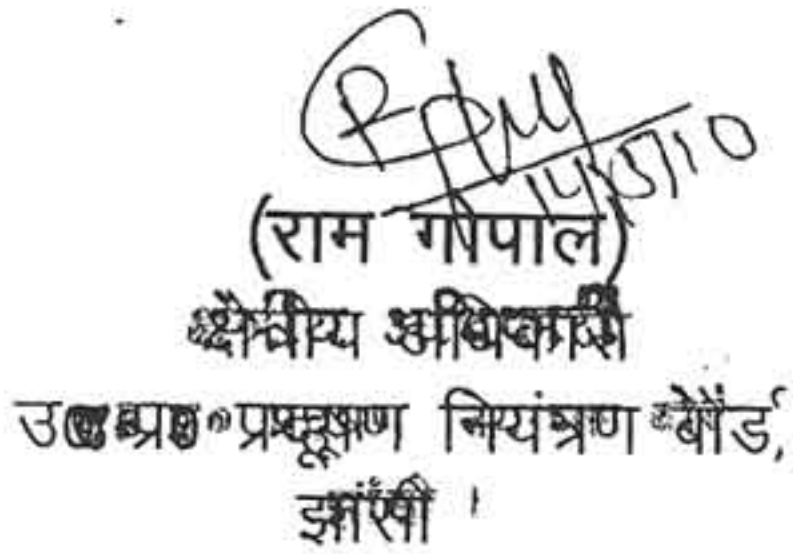 14/5/10
(राम गोपाल)
क्षेत्रीय अधिकारी
उ०प्र० प्रदूषण नियंत्रण बोर्ड,
झांसी ।